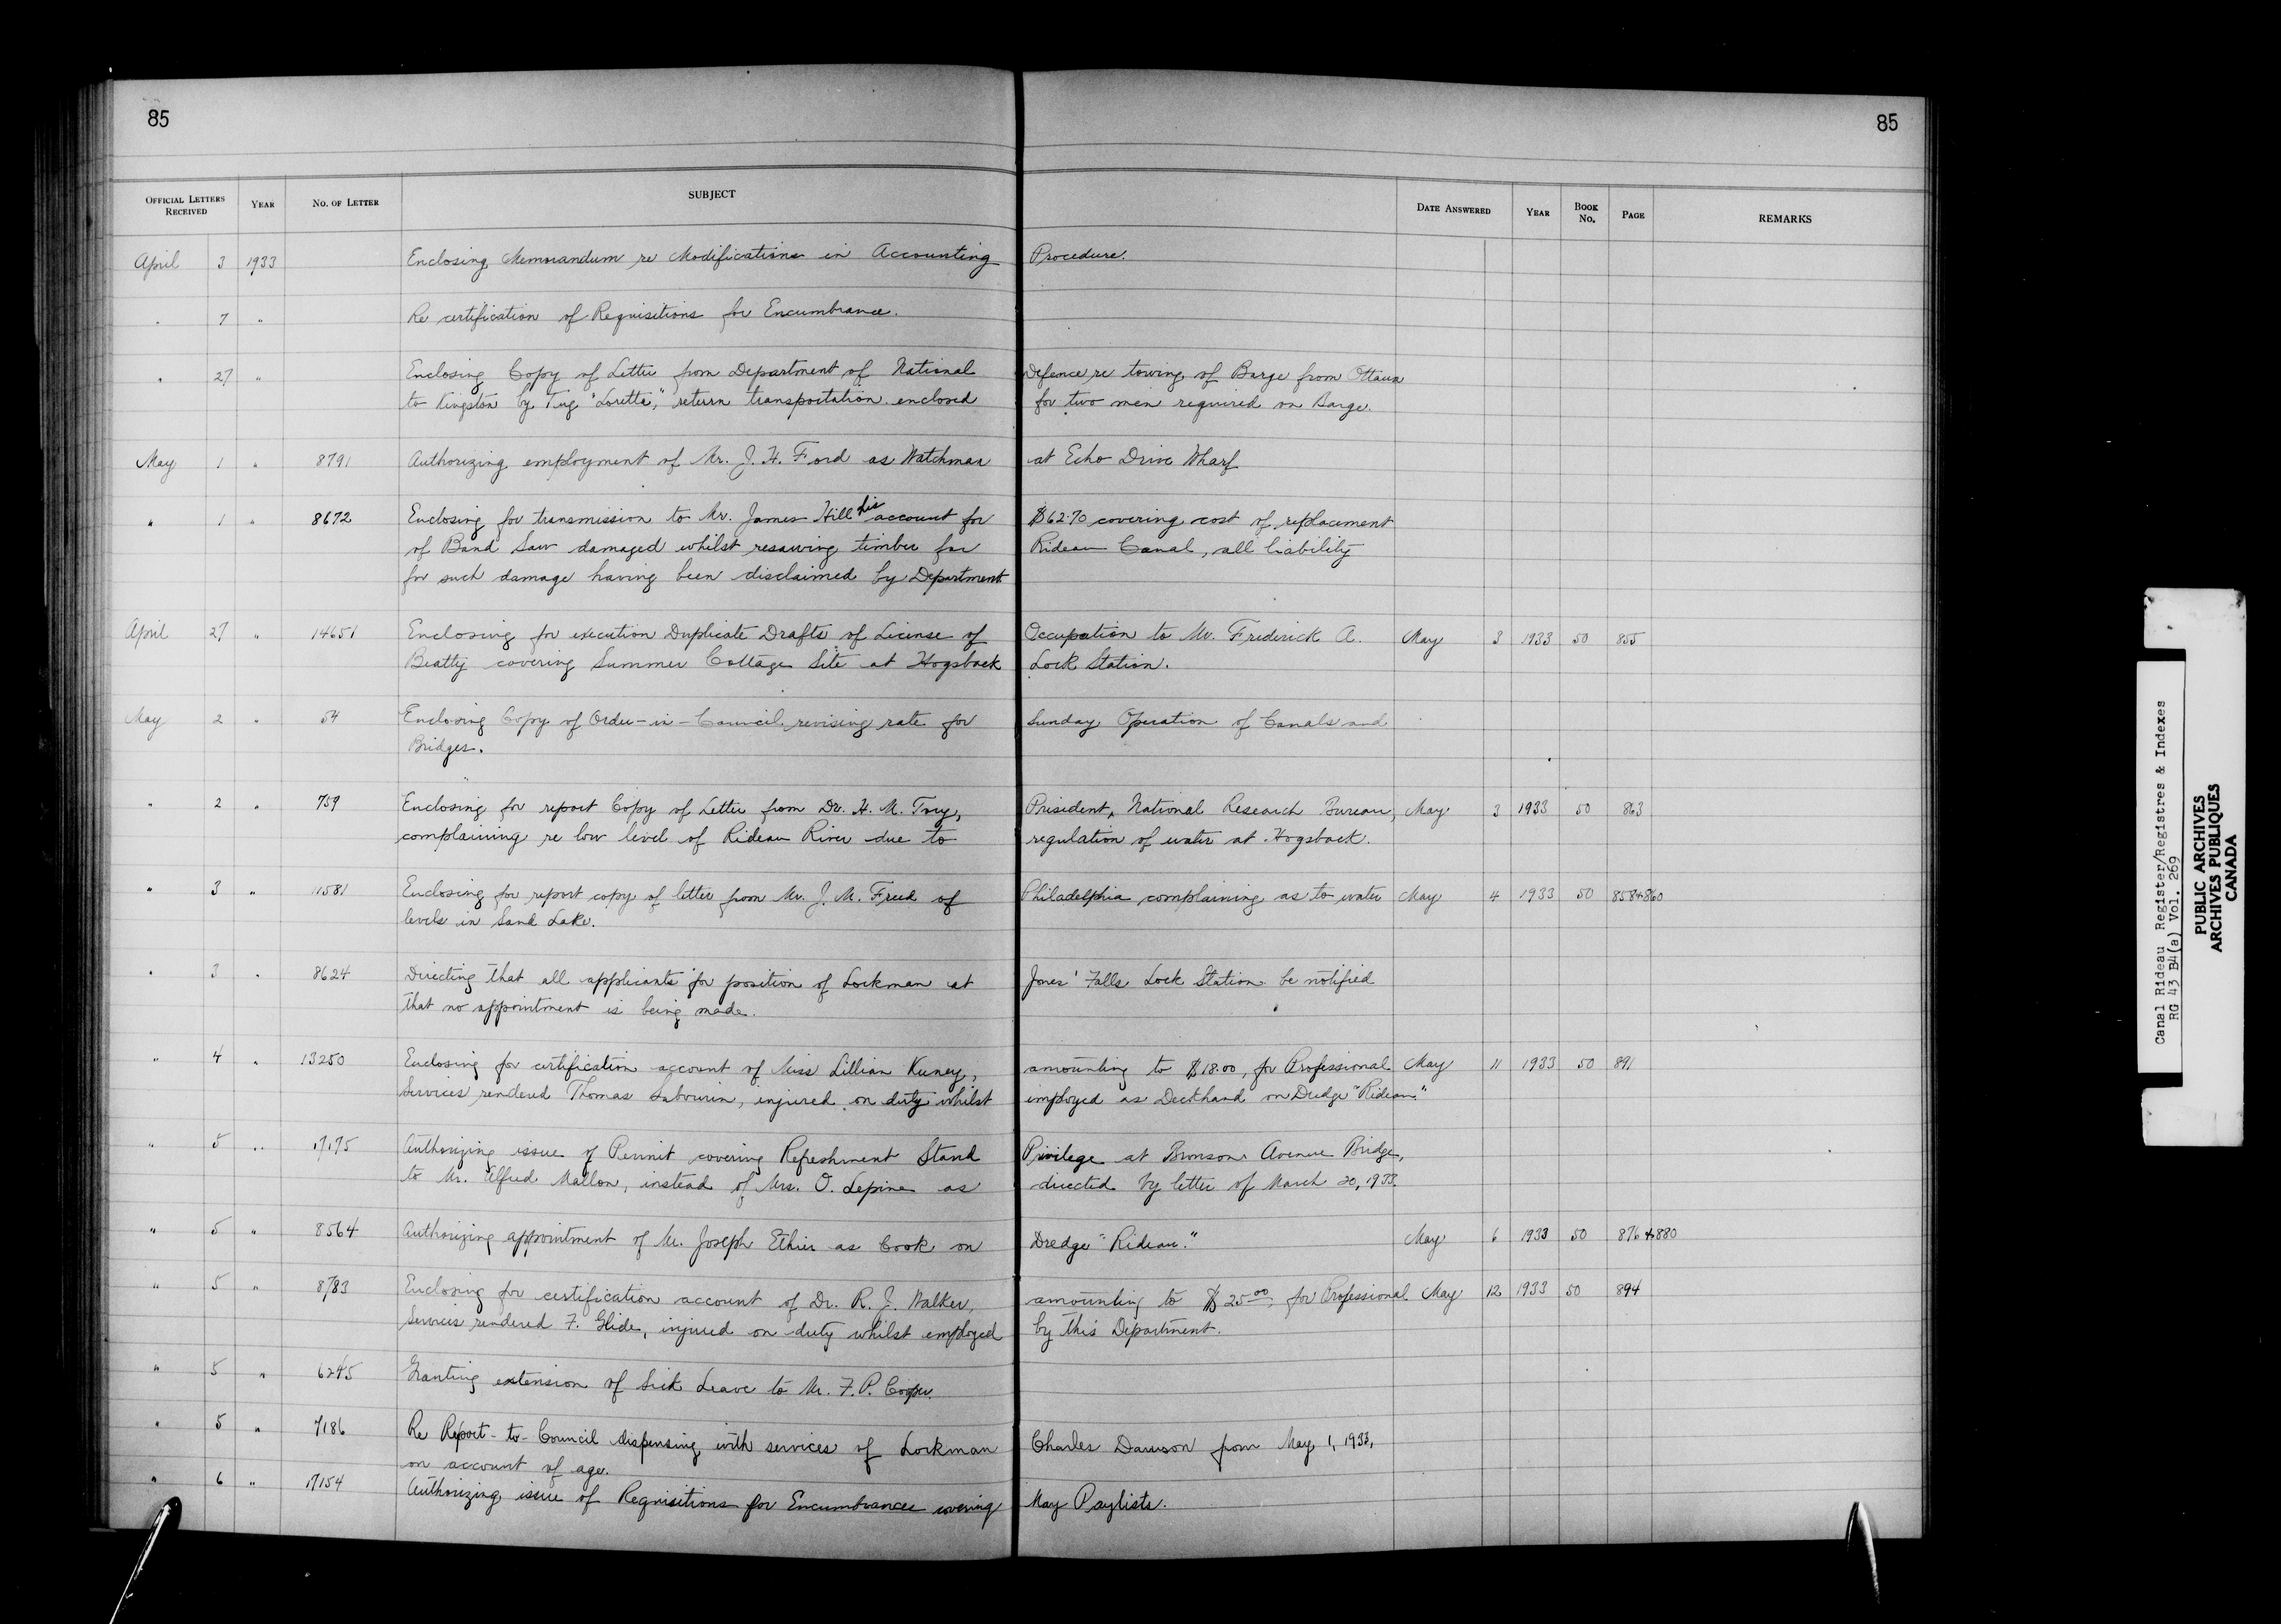 85
85
OFFICIAL LETTERS RECEIVED YEAR NO. OF LETTER SUBJECT DATE ANSWERED YEAR BOOK NO. PAGE REMARKS
April 3 1933 Enclosing Memorandum re Modifications in Accounting Procedure.
" 7 " Re certification of Requisitions for Encumbrance.
" 27 " Enclosing Copy of Letter from Department of National Defence re towing of Barge from Ottawa
to Kingston by Tug "Loretta," return transportation enclosed for two men required on Barge.
May 1 " 8791 Authorizing employment of Mr. J. H. Ford as Watchman at Echo Drive Wharf
" 1 " 8672 Enclosing for transmission to Mr. James Hill his account for $62.70 covering cost of replacement
of Band Saw damaged whilst resawing timber for Rideau Canal, all liability
for such damage having been disclaimed by Department
April 27 " 14651 Enclosing for execution Duplicate Drafts of License of Occupation to Mr. Frederick A. May 3 1933 50 855
Beatty covering Summer Cottage Site at Hogsback Lock Station.
May 2 " 54 Enclosing Copy of Order-in-Council revising rate for Sunday Operation of Canals and
Bridges.
" 2 " 759 Enclosing for report Copy of Letter from Dr. H. M. Tory, President, National Research Bureau, May 3 1933 50 863
complaining re low level of Rideau River due to regulation of water at Hogsback.
" 3 " 11581 Enclosing for report copy of letter from Mr. J. M. Freed of Philadelphia complaining as to water May 4 1933 50 858+860
levels in Sand Lake.
" 3 " 8624 Directing that all applicants for position of Lockman at Jones' Falls Lock Station be notified
that no appointment is being made.
" 4 " 13250 Enclosing for certification account of Miss Lillian Keeney, amounting to $18.00, for Professional May 11 1933 50 891
Services rendered Thomas Sabourin, injured on duty whilst employed as Deckhand on Dredge "Rideau."
" 5 " 17175 Authorizing issue of Permit covering Refreshment Stand Privilege at Bronson Avenue Bridge,
to Mr. Alfred Mallon, instead of Mrs. O. Lepine as directed by letter of March 20, 1933.
" 5 " 8564 Authorizing appointment of Mr. Joseph Ethier as Cook on Dredge "Rideau." May 6 1933 50 876+880
" 5 " 8783 Enclosing for certification account of Dr. R. J. Walker, amounting to $25.00, for Professional May 12 1933 50 894
Services rendered F. Glide, injured on duty whilst employed by this Department.
" 5 " 6245 Granting extension of Sick Leave to Mr. F. P. Cooper.
" 5 " 7186 Re Report-to-Council dispensing with services of Lockman Charles Dawson from May 1, 1933,
on account of age.
" 6 " 17154 Authorizing issue of Requisitions for Encumbrances covering May Paylists.
Canal Rideau Register/Registres & Indexes
RG 43 B4(a) Vol. 269
PUBLIC ARCHIVES
ARCHIVES PUBLIQUES
CANADA